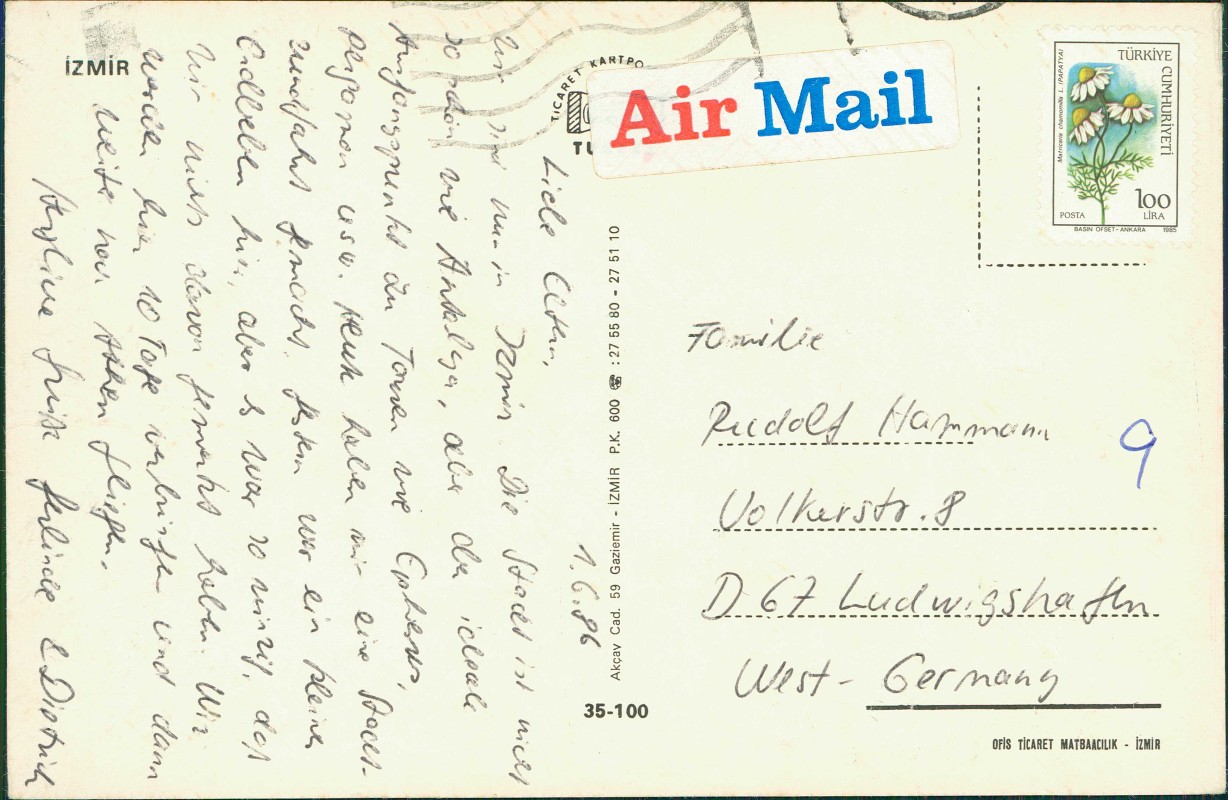 İZMİR
TİCARET KARTPO
TU
Air Mail
TÜRKİYE CUMHURİYETİ
Matricaria chamomilla L. (PAPATYA)
100
LİRA
POSTA
BASIN OFSET-ANKARA 1985
1.6.86
Liebe Eltern,
wir sind nun in Izmir. Die Stadt ist nicht
so schön wie Antalya, aber der ideale
Ausgangspunkt zu Touren wie Ephesus,
usw. Heute haben wir eine Stadt-
rundfahrt gemacht. Gestern war ein kleines
Erdbeben hier, aber es war so winzig, daß
wir nichts davon gemerkt haben. Wir
werden hier 10 Tage verbringen und dann
weiter nach Athen fliegen.
Herzliche Grüße Gerlinde & Dietrich
Akçay Cad. 59 Gaziemir - İZMİR P.K. 600 : 27 55 80 - 27 51 10
35-100
Familie
Rudolf Hammann
Volkerstr. 8
D 67 Ludwigshafen
West-Germany
9
OFİS TİCARET MATBAACILIK - İZMİR